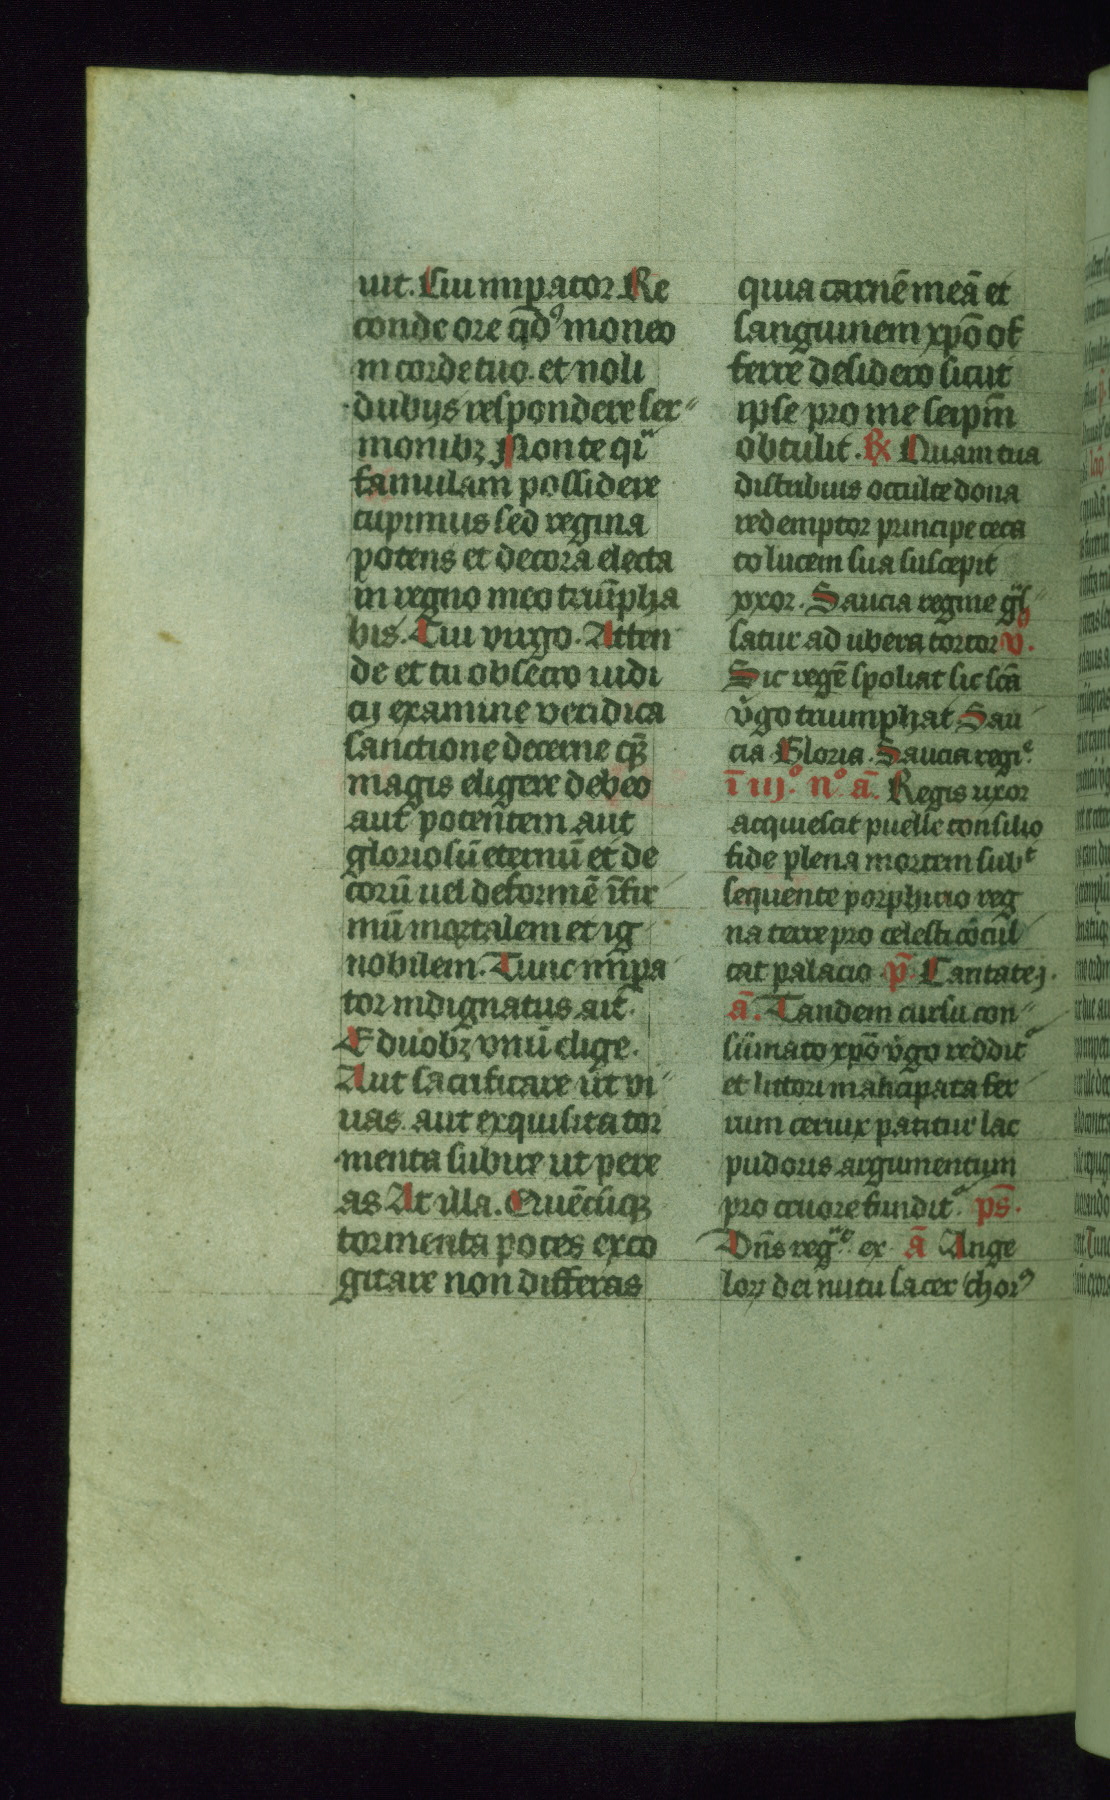 uit. Cui imꝑator. Re
conde ore qd' moneo
in corde tuo. et noli
dubijs respondere ser
monibꝫ Non te qͥ
famulam possidere
cupimus sed regina
potens et decora electa
in regno meo triūpha
bis. Cui virgo. Atten
de et tu obsecro iudi
cij examine veridica
sanctione decerne qꝫ
magis eligere debeo
aut potentem aut
gloriosū eternū et de
corū uel deformē īfir
mū mortalem et ig
nobilem. Tunc imꝑa
tor indignatus ait
E duobꝫ vnū elige.
Aut sacrificare ut vi
uas. aut exquisita tor
menta subire ut pere
as At illa. Quēcūqꝫ
tormenta potes exco
gitare non differas
quia carnē meā et
sanguinem xp̄o of
ferre desidero sicut
ipse pro me seip̄m
obtulit. ℟ Quam tua
distribuis occulte dona
redemptor principe ceca
to lucem sua suscepit
vxor. Saucia regine gͥl
latur ad ubera tortor v̊.
Sic regē spoliat sic scā
v̊go triumphat Sau
cia Gloria. Saucia regiᵉ
ī iij° n° ā. Regis uxor
acquiescit puelle consilio
fide plena mortem subᵗ
sequente porphirio reg
na terre pro celesti cōcul
cat palacio p̄. Cantate j.
ā. Tandem cursu con
sūmato xp̄o v̊go reddit
et lictori mācipata fer
rum ceruix patitur lac
pudoris argumentum
pro cruore fundit p̄s.
Dn̄s regͥᵗ ex. ā Ange
loꝝ dei nutu sacer chor⁹